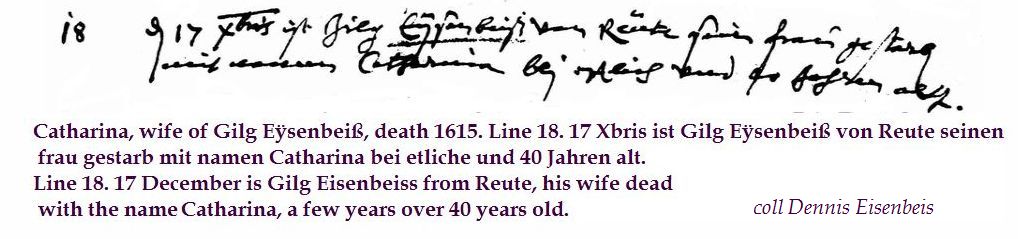 i8 d 17 Xbris ist Gilg Eÿsenbeiß von Reüte seinen frau gestarb
mit namen Catharina bej etlich und 40 Jahren alt.
Catharina, wife of Gilg Eÿsenbeiß, death 1615. Line 18. 17 Xbris ist Gilg Eÿsenbeiß von Reute seinen
frau gestarb mit namen Catharina bei etliche und 40 Jahren alt.
Line 18. 17 December is Gilg Eisenbeiss from Reute, his wife dead
with the name Catharina, a few years over 40 years old.
coll Dennis Eisenbeis